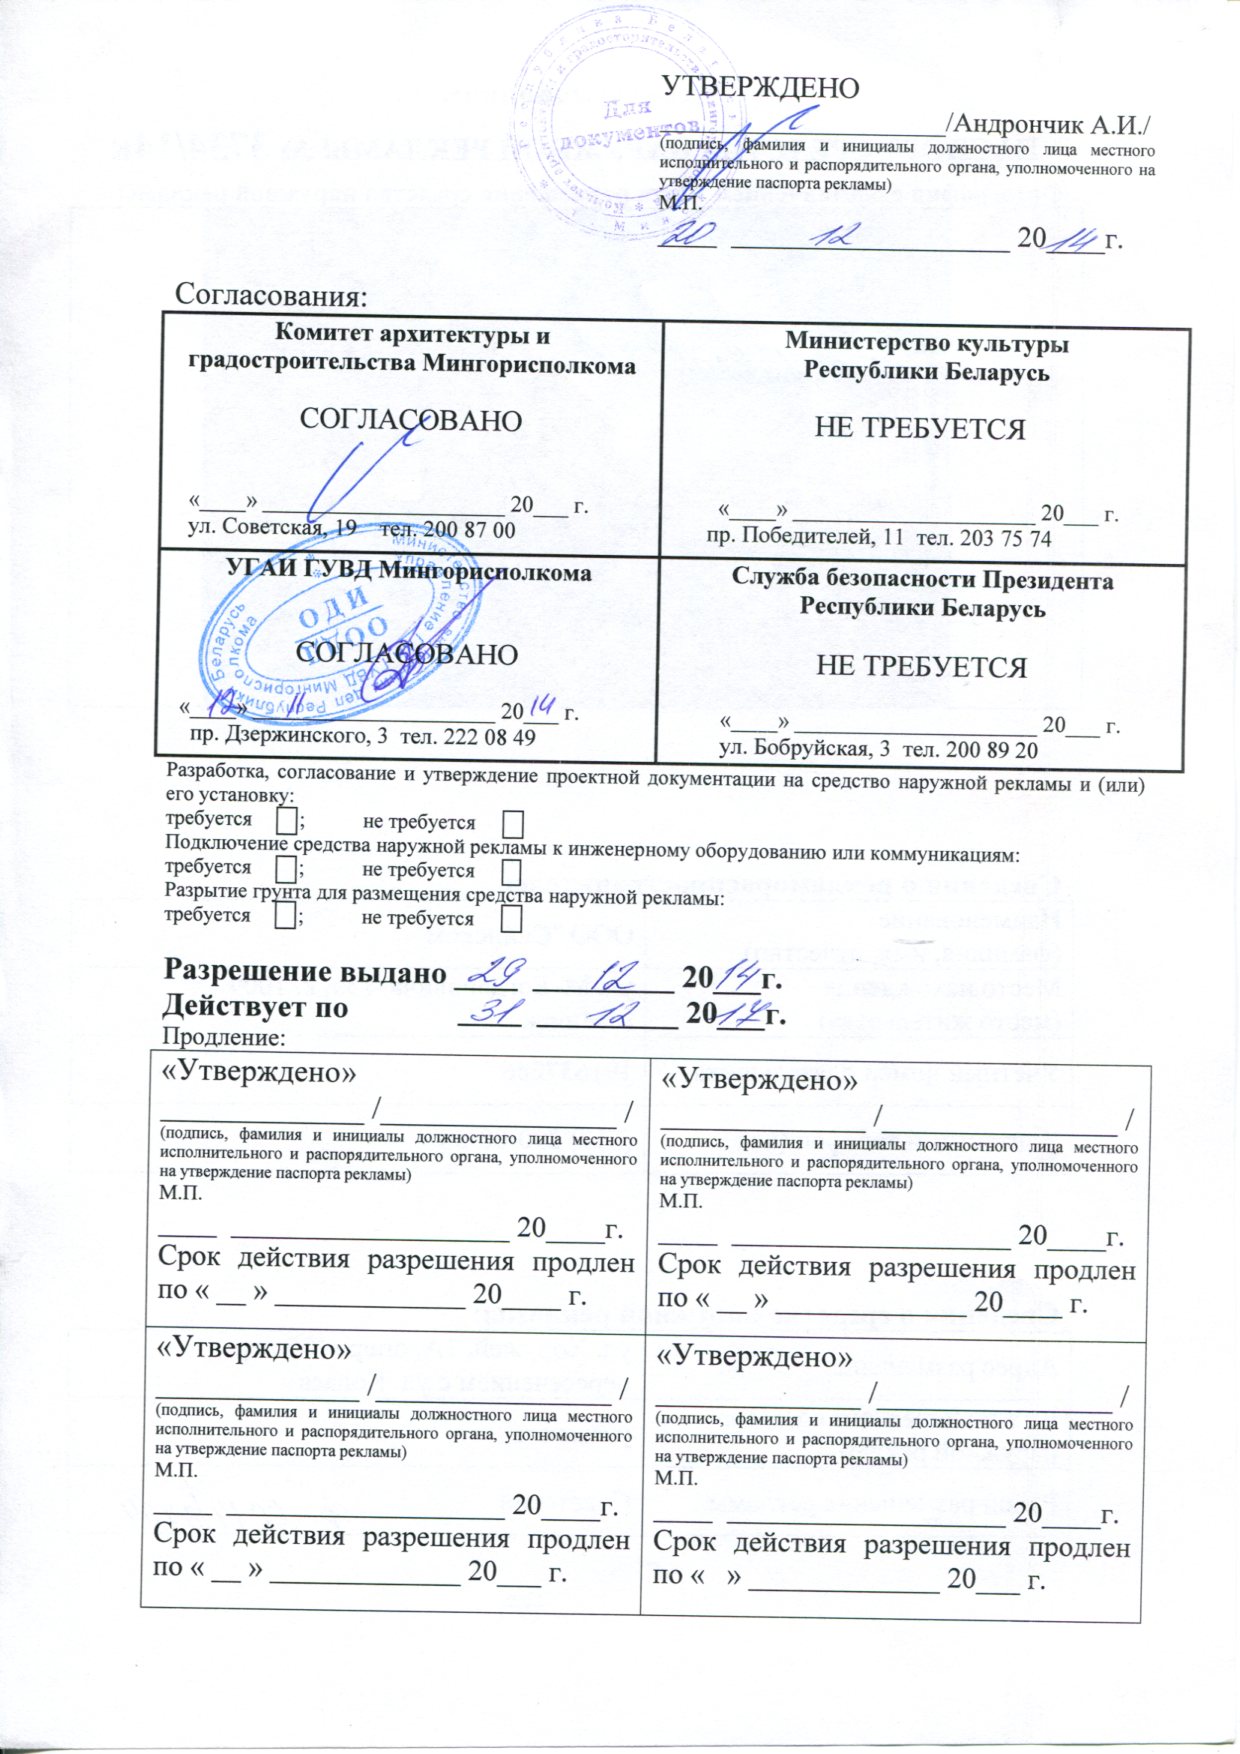 УТВЕРЖДЕНО
____________________/Андрончик А.И./
(подпись, фамилия и инициалы должностного лица местного
исполнительного и распорядительного органа, уполномоченного на
утверждение паспорта рекламы)
М.П.
20 12 2014г.
Для
документов
Согласования:
Комитет архитектуры и
градостроительства Мингорисполкома
СОГЛАСОВАНО
«____» ____________________ 20___ г.
ул. Советская, 19 тел. 200 87 00
Министерство культуры
Республики Беларусь
НЕ ТРЕБУЕТСЯ
«____» ____________________ 20___ г.
пр. Победителей, 11 тел. 203 75 74
УГАИ ГУВД Мингорисполкома
ОДИ
СОГЛАСОВАНО
«12» 11 2014 г.
пр. Дзержинского, 3 тел. 222 08 49
Служба безопасности Президента
Республики Беларусь
НЕ ТРЕБУЕТСЯ
«____» ____________________ 20___ г.
ул. Бобруйская, 3 тел. 200 89 20
Разработка, согласование и утверждение проектной документации на средство наружной рекламы и (или)
его установку:
требуется ; не требуется
Подключение средства наружной рекламы к инженерному оборудованию или коммуникациям:
требуется ; не требуется
Разрытие грунта для размещения средства наружной рекламы:
требуется ; не требуется
Разрешение выдано 29 12 2014г.
Действует по 31 12 2017г.
Продление:
«Утверждено»
______________ /________________ /
(подпись, фамилия и инициалы должностного лица местного
исполнительного и распорядительного органа, уполномоченного
на утверждение паспорта рекламы)
М.П.
____ ___________________ 20____г.
Срок действия разрешения продлен
по « __ » _____________ 20____ г.
«Утверждено»
______________ /________________ /
(подпись, фамилия и инициалы должностного лица местного
исполнительного и распорядительного органа, уполномоченного
на утверждение паспорта рекламы)
М.П.
____ ___________________ 20____г.
Срок действия разрешения продлен
по « __ » _____________ 20____ г.
«Утверждено»
______________ /________________ /
(подпись, фамилия и инициалы должностного лица местного
исполнительного и распорядительного органа, уполномоченного
на утверждение паспорта рекламы)
М.П.
____ ___________________ 20____г.
Срок действия разрешения продлен
по « __ » _____________ 20___ г.
«Утверждено»
______________ /________________ /
(подпись, фамилия и инициалы должностного лица местного
исполнительного и распорядительного органа, уполномоченного
на утверждение паспорта рекламы)
М.П.
____ ___________________ 20____г.
Срок действия разрешения продлен
по « » _____________ 20___ г.